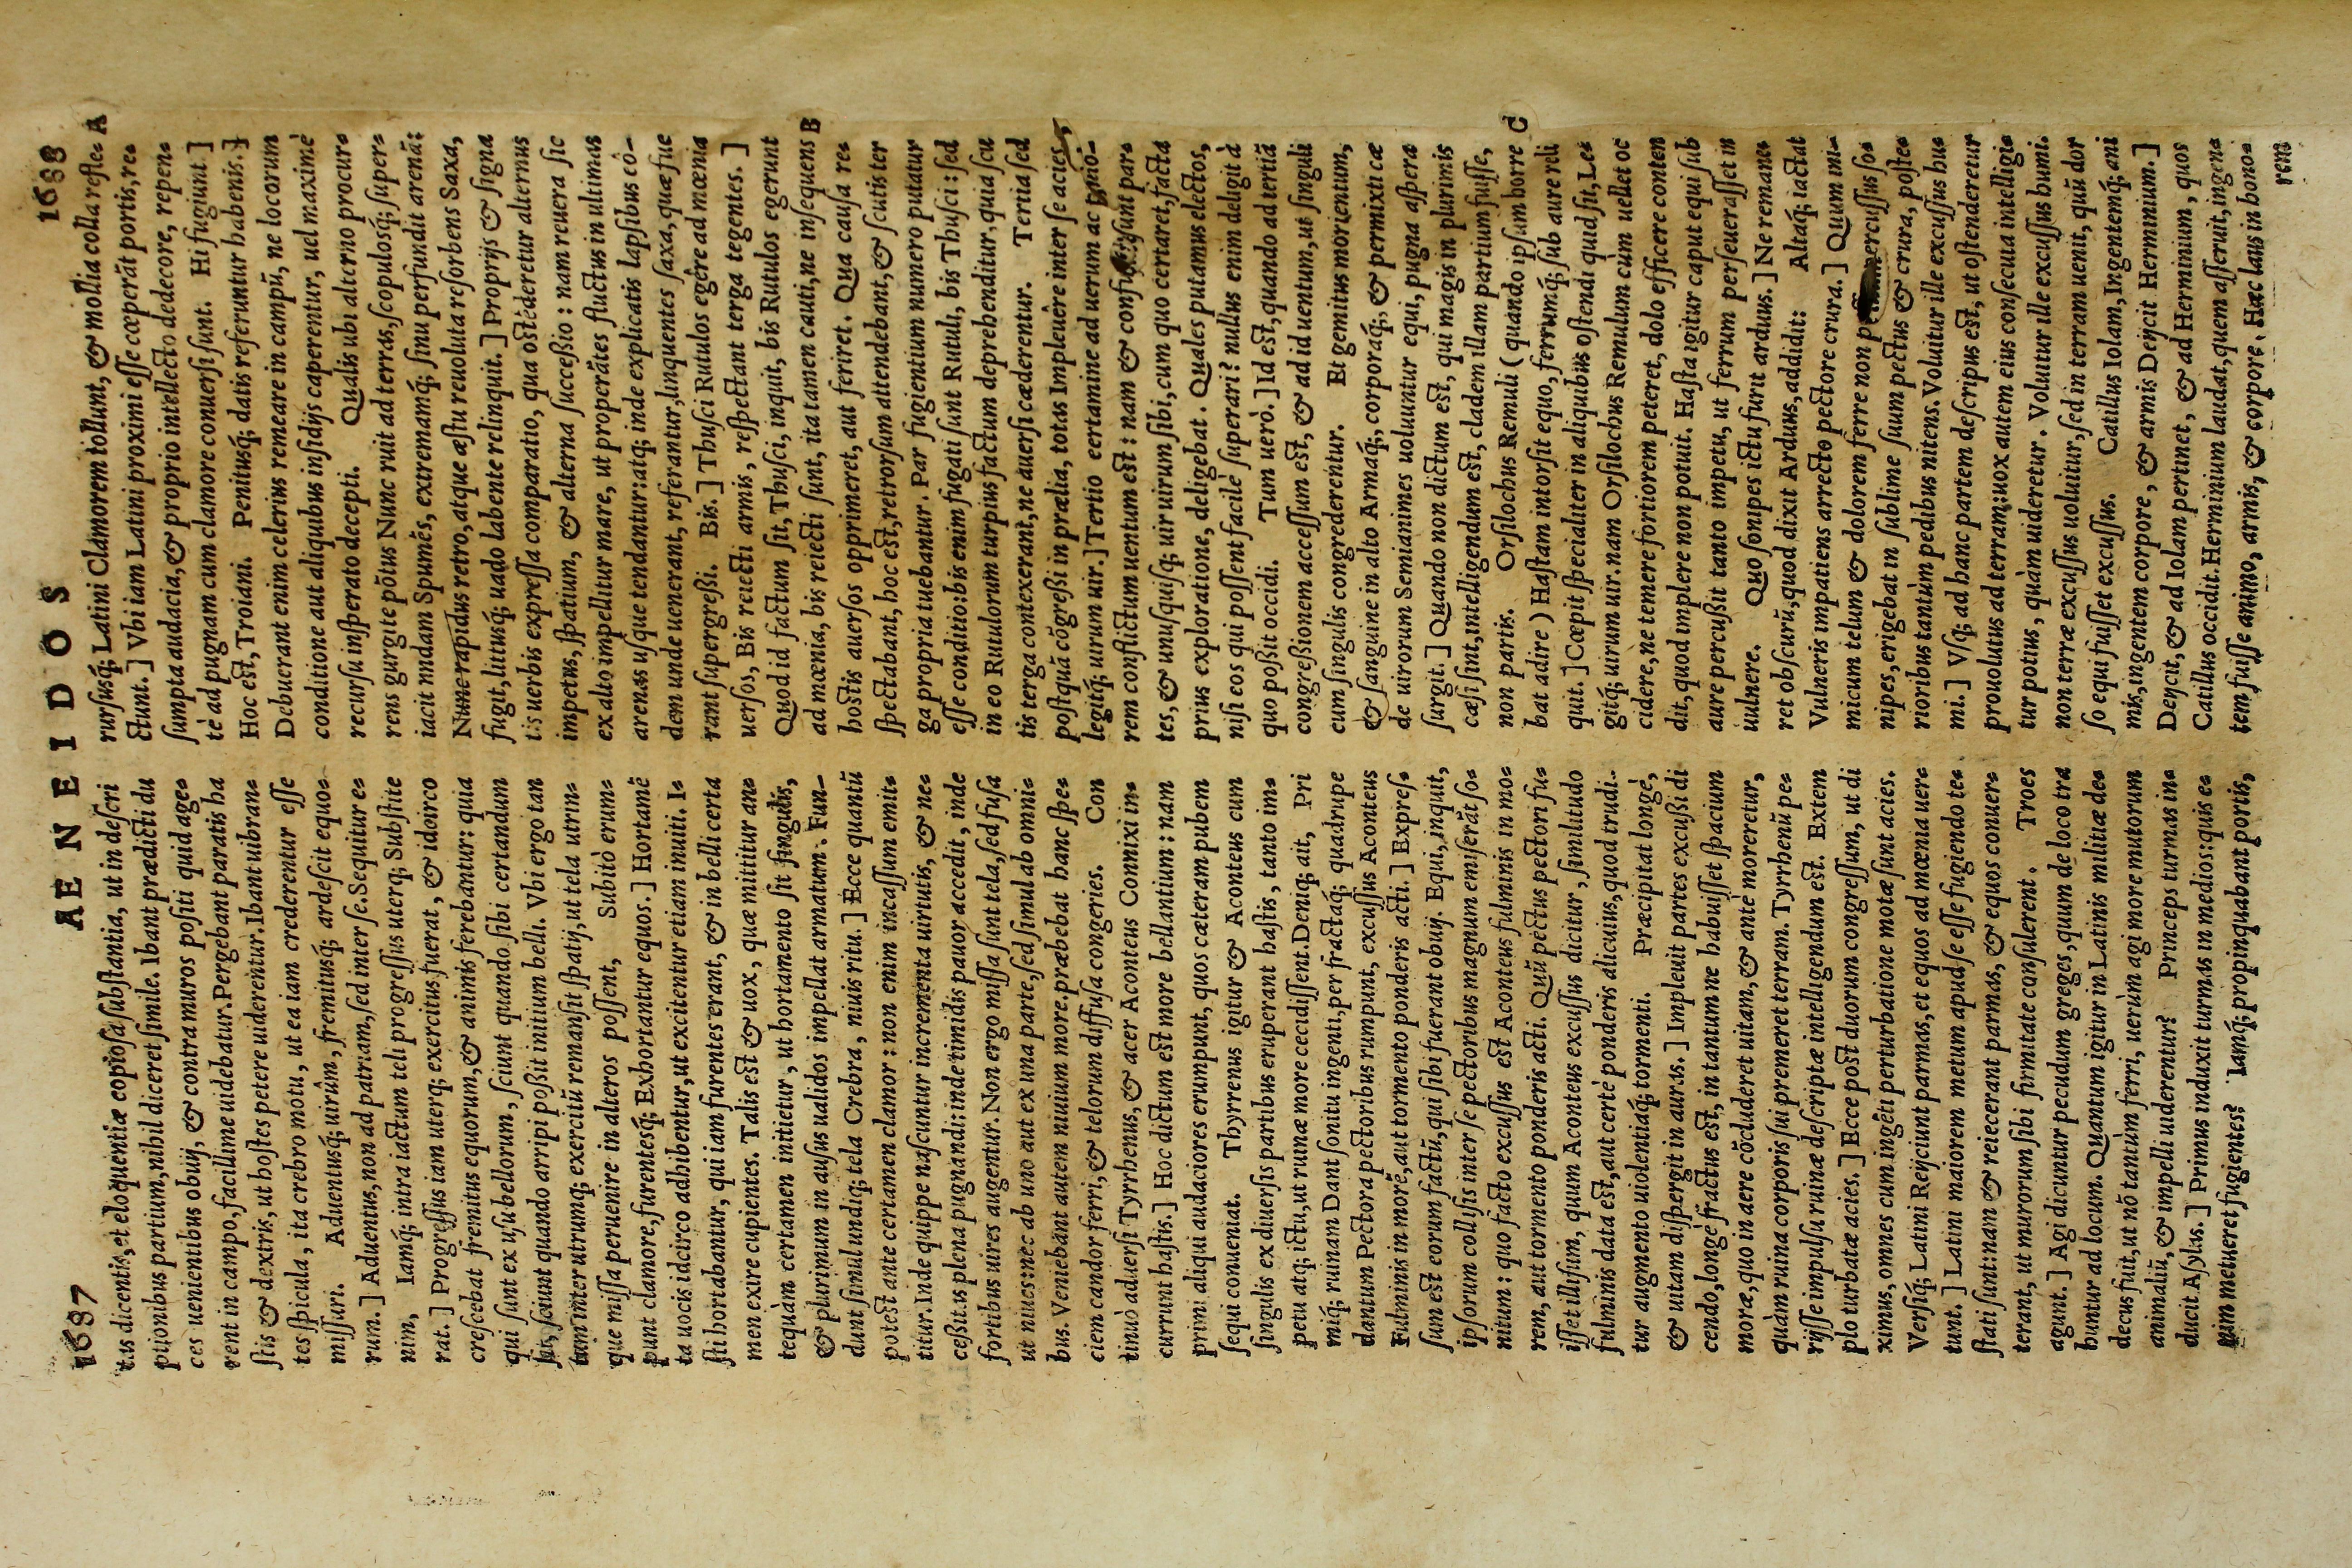 1687
AENEIDOS
1688
tus dicentis, et eloquentiæ copiosa substantia, ut in descri
ptionibus partium, nihil diceret simile. Ibant prædicti du
ces uenientibus obuij, & contra muros positi quid age-
rent in campo, facillime uidebatur. Pergebant paratis ha
stis & dextris, ut hostes petere uiderentur. Ibant uibran-
tes spicula, ita crebro motu, ut ea iam crederentur esse
missuri. Aduentusq́; uirûm, fremitusq́; ardescit equo-
rum.] Aduentus, non ad patriam, sed inter se. Sequitur e-
nim, Iamq́; intra iactum teli progressus uterq; Substite
rat.] Progressus iam uterq; exercitus fuerat, & idcirco
crescebat fremitus equorum, & animis ferebantur: quia
qui sunt ex usu bellorum, sciunt quando sibi certandum
sciunt quando arripi possit initium belli. Vbi ergo tan
tum inter utrumq; exercitũ remansit spatij, ut tela utrin-
que missa peruenire in alteros possent, Subitò erum-
punt clamore, furentesq́; Exhortantur equos.] Hortamẽ
ta uocis idcirco adhibentur, ut excitentur etiam inuiti. I-
sti hortabantur, qui iam furentes erant, & in belli certa
men exire cupientes. Talis est & uox, quæ mittitur an-
tequàm certamen initietur, ut hortamento sit singulis,
& plurimum in ausus ualidos impellat armatum. Fun-
dunt simul undiq; tela Crebra, niuis ritu.] Ecce quantũ
potest ante certamen clamor: non enim incassum emit-
titur. Inde quippe nascuntur incrementa uirtutis, & ne-
cessitas plena pugnandi: inde timidis pauor accedit, inde
fortibus uires augentur. Non ergo missa sunt tela, sed fusa
ut niues: nec ab uno aut ex una parte, sed simul ab omni-
bus. Veniebant autem niuium more. præbebat hanc spe-
ciem candor ferri, & telorum diffusa congeries. Con
tinuò aduersi Tyrrhenus, & acer Aconteus Connixi in-
currunt hastis.] Hoc dictum est more bellantium: nam
primi aliqui audaciores erumpunt, quos cæteram pubem
sequi conueniat. Thyrrenus igitur & Aconteus cum
singulis ex diuersis partibus eruperant hastis, tanto im-
petu atq; ictu, ut ruinæ more cecidissent. Deniq; ait, Pri
miq́; ruinam Dant sonitu ingenti, per fractaq́; quadrupe
dantum Pectora pectoribus rumpunt, excussus Aconteus
Fulminis in morẽ, aut tormento ponderis acti.] Expres-
sum est eorum factũ, qui sibi fuerant obuij. Equi, inquit,
ipsorum collisis inter se pectoribus magnum emiserãt so-
nitum: quo facto excussus est Aconteus fulminis in mo-
rem, aut tormento ponderis acti. Quũ pectus pectori fu-
isset illisum, quum Aconteus excussus dicitur, similitudo
fulminis data est, aut certè ponderis alicuius, quod trudi-
tur augmento uiolentiaq́; tormenti. Præcipitat longè,
& uitam dispergit in auras.] Impleuit partes excussi di
cendo, longè fractus est, in tantum ne habuisset spacium
moræ, quo in aere cõcluderet uitam, & antè moreretur,
quàm ruina corporis sui premeret terram. Tyrrhenũ pe-
rijsse impulsu ruinæ descriptæ intelligendum est. Extem
plo turbatæ acies.] Ecce post duorum congressum, ut di
ximus, omnes cum ingẽti perturbatione motæ sunt acies.
Versiq́; Latini Reijciunt parmas, et equos ad mœnia uer-
tunt.] Latini maiorem metum apud se esse fugiendo te-
stati sunt: nam & reiecerant parmas, & equos conuer-
terant, ut murorum sibi firmitate consulerent. Troes
agunt.] Agi dicuntur pecudum greges, quum de loco tra
huntur ad locum. Quantum igitur in Latinis militiæ de-
decus fuit, ut nõ tantùm ferri, uerùm agi more mutorum
animaliũ, & impelli uiderentur? Princeps turmas in-
ducit Asylus.] Primus induxit turmas in medios: quis e-
nim metueret fugientes? Iamq́; propinquabant portis,
rursusq́; Latini Clamorem tollunt, & mollia colla refle- A
ctunt.] Vbi iam Latini proximi esse cœperãt portis, re-
sumpta audacia, & proprio intellecto dedecore, repen-
tè ad pugnam cum clamore conuersi sunt. Hi fugiunt.]
Hoc est, Troiani. Penitusq́; datis referuntur habenis.]
Debuerant enim celerius remeare in campũ, ne locorum
conditione aut aliquibus insidijs caperentur, uel maximè
recursu insperato decepti. Qualis ubi alterno procur-
rens gurgite põtus Nunc ruit ad terras, scopulosq́; super-
iacit undam Spumẽs, extremamq́; sinu perfundit arenã:
Nunc rapidus retro, atque æstu reuoluta resorbens Saxa,
fugit, litusq́; uado labente relinquit.] Proprijs & signa
tis uerbis expressa comparatio, qua ostẽderetur alternus
impetus, spatium, & alterna successio: nam reuera sic
ex alto impellitur mare, ut properãtes fluctus in ultimas
arenas usque tendantur: atq; inde explicatis lapsibus eõ-
dem unde uenerant, referantur, linquentes saxa, quæ fue
rant supergressi. Bis.] Thusci Rutulos egêre ad mœnia
uersos, Bis reiecti armis, respectant terga tegentes.]
Quod id factum sit, Thusci, inquit, bis Rutulos egerunt
ad mœnia, bis reiecti sunt, ita tamen cauti, ne insequens B
hostis auersos opprimeret, aut feriret. Qua causa re-
spectabant, hoc est, retrorsum attendebant, & scutis ter
ga propria tuebantur. Par fugientium numero putatur
esse conditio: bis enim fugati sunt Rutuli, bis Thusci: sed
in eo Rutulorum turpius factum deprehenditur, quia scu
tis terga contexerant, ne auersi cæderentur. Tertia sed
postquã cõgressi in prælia, totas Impleuêre inter se acies,
legitq́; uirum uir.] Tertio certamine ad uerum ac
rem conflictum uentum est: nam & sunt par-
tes, & unusquisq; uir uirum sibi, cum quo certaret, facta
prius exploratione, deligebat. Quales putamus electos,
nisi eos qui possent facilè superari? nullus enim deligit à
quo possit occidi. Tum uerò.] Id est, quando ad tertiã
congressionem accessum est, & ad id uentum, ut singuli
cum singulis congrederentur. Et gemitus morientum,
& sanguine in alto Armaq́;, corporaq́;, & permixti cæ
de uirorum Semianimes uoluuntur equi, pugna aspera
surgit.] Quando non dictum est, qui magis in plurimis
cæsi sint, intelligendum est, cladem illam partium fuisse,
non partis. Orsilochus Remuli (quando ipsum horre C
bat adire) Hastam intorsit equo, ferrumq́; sub aure reli
quit.] Cœpit specialiter in aliquibus ostendi quid sit, Le-
gitq́; uirum uir. nam Orsilochus Remulum cum uellet oc
cidere, ne temere fortiorem peteret, dolo efficere conten
dit, quod implere non potuit. Hasta igitur caput equi sub
aure percussit tanto impetu, ut ferrum perseuerasset in
uulnere. Quo sonipes ictu furit arduus.] Ne remane-
ret obscurũ, quod dixit Arduus, addidit: Altaq́; iactat
Vulneris impatiens arrecto pectore crura.] Quum ini-
micum telum & dolorem ferre non so-
nipes, erigebat in sublime suum pectus & crura, poste-
rioribus tantùm pedibus nitens. Voluitur ille excussus hu-
mi.] Vsq; ad hanc partem descripus est, ut ostenderetur
prouolutus ad terram: uox autem eius consecuta intelligi-
tur potius, quàm uideretur. Voluitur ille excussus humi.
non terræ excussus uoluitur, sed in terram uenit, quũ dor
so equi fuisset excussus. Catillus Iolam, Ingentemq́; ani
mis, ingentem corpore, & armis Deijcit Herminium.]
Deijcit, & ad Iolam pertinet, & ad Herminium, quos
Catillus occidit. Herminium laudat, quem asseruit, ingen-
tem fuisse animo, armis, & corpore. Hæc laus in hono-
rem